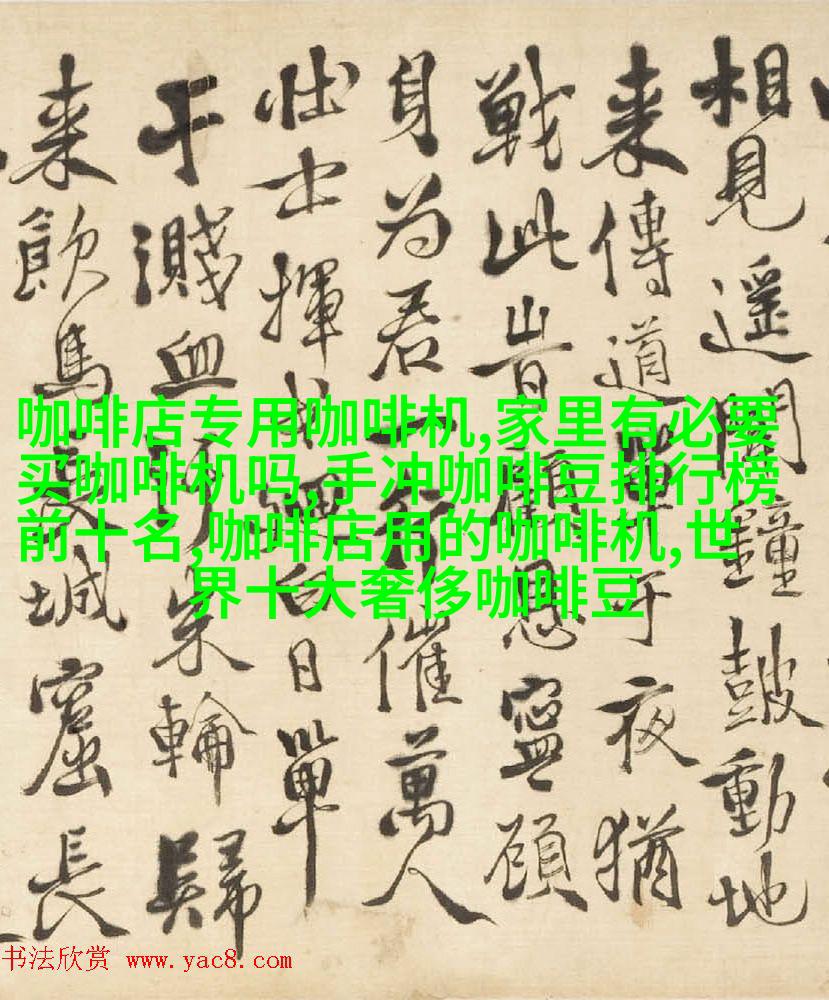 相見遥聞鐘鼓動地
来傳道單于夜猶
戰此旹顧恩寧顧
身為君一行催萬人
壮士揮戈回白日單
于濺血染朱輪歸
来飲馬長城窟長
咖啡店专用咖啡机,家里有必要
买咖啡机吗,手冲咖啡豆排行榜
前十名,咖啡店用的咖啡机,世
界十大奢侈咖啡豆
书法欣赏 www.yac8.com